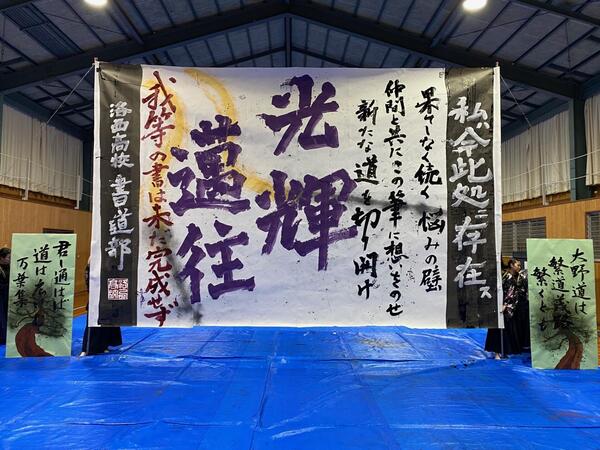 大野道は
繁道茂路
繁くとも
私、今此処ニ存在ス
果てしなく続く悩みの壁
仲間と共にこの筆に想いをのせ
新たな道を切り開け
光輝
邁往
我等の書は未だ完成せず
洛西高校 書道部
君し通はば
道は
万葉集